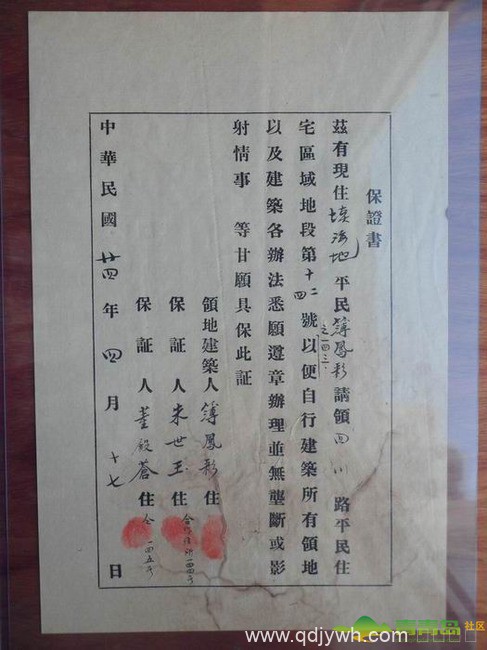 保證書
茲有現住填海地平民薄鳳彩請領四川路平民住
之一四三
宅區域地段第十二四號以便自行建築所有領地
以及建築各辦法悉願遵章辦理並無壟斷或影
射情事等甘願具保此証
領地建築人薄鳳彩住
保証人朱世玉住
保証人董殿蒼住仝一四五号
中華民國廿四年四月十七日
www.qdjywh.com
青青岛社区